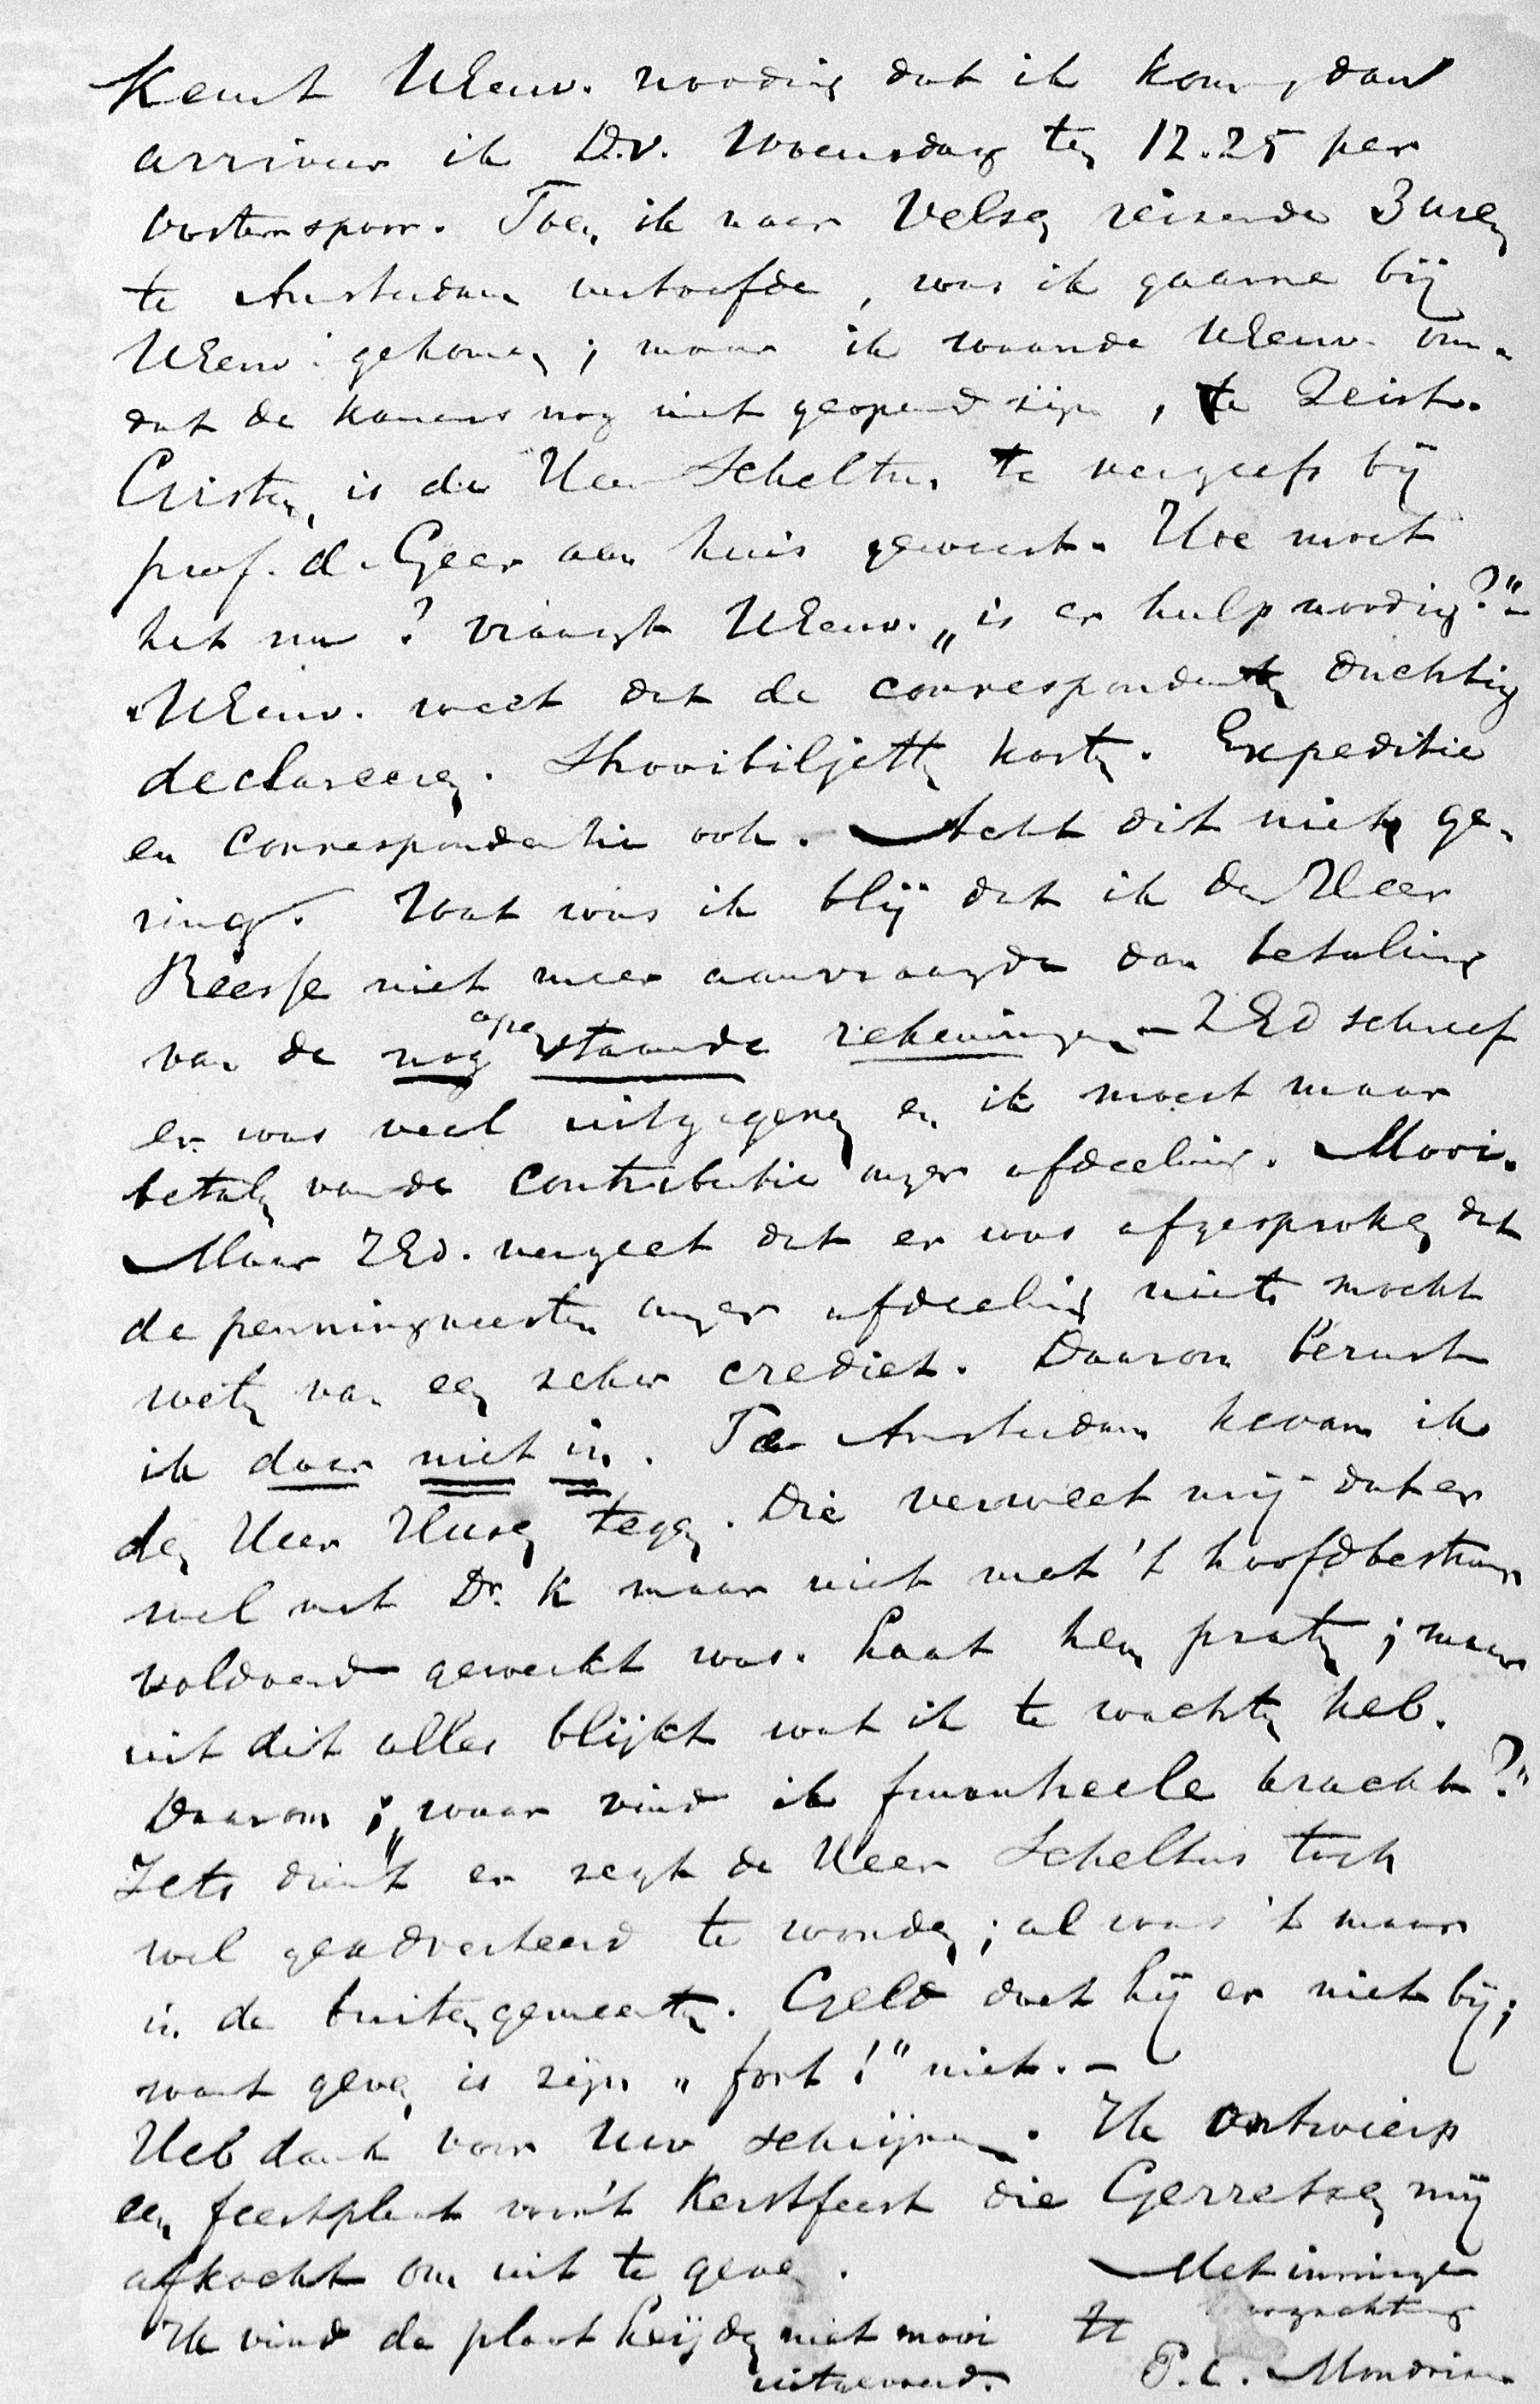 Keurt UEerw. noodig dat ik kom, dan
arriveer ik D.V. Woensdag ten 12.25 per
Oosterspoor. Toen ik naar Velsen reizende 3 uren
te Amsterdam vertoefde, was ik gaarne bij
UEerw. gekomen; maar ik waande UEerw. om-
dat de Kamers nog niet geopend zijn, te Zeist.
Gisteren is de Heer Scheltus te vergeefs bij
prof. de Geer aan huis geweest. Hoe moet
het nu? vraagt UEerw. „is er hulp noodig?"
UEerw. weet dat de correspondenten duchtig
declareeren. Strooibiljetten kosten. Expeditie
en correspondentie ook. Acht dit niet ge-
ring. Wat was ik blij dat ik den Heer
Reesse niet meer aanvraagde dan betaling
van de nog openstaande rekeningen — ZEd schreef
er was veel uitgegeven en ik moest maar
betalen van de contributie onzer afdeeling. Mooi.
Maar ZEd. vergeet dat er was afgesproken dat
de penningmeester onzer afdeeling niets mocht
weten van een zeker crediet. Daarom berust
ik daar niet in. Te Amsterdam kwam ik
den Heer Husen tegen. Die verweet mij dat er
wel met Dr. K maar niet met 't hoofdbestuur
voldoend gewerkt was. Laat hem praten; maar
uit dit alles blijkt wat ik te wachten heb.
Daarom; „waar vind ik financieele kracht?"
Iets dient er zegt de Heer Scheltus toch
wel geadverteerd te worden; al was 't maar
in de buitengemeenten. Geld doet hij er niet bij;
want geven is zijn „fort!" niet. —
Heb dank voor Uw schrijven. Ik ontwierp
een feestplaat voor 't Kerstfeest die Gerretsen mij
afkocht om uit te geven.
Met innige
Ik vind de plaat Heijden niet mooi
uitgevoerd.
hoogachting
tt
P.C. Mondriaan